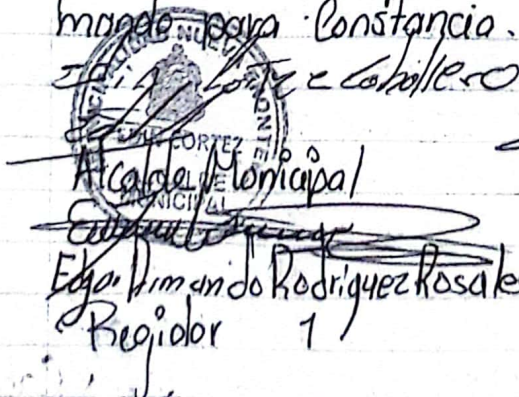 mando para Constancia.
Caballero
CORTEZ
Alcalde Monicipal
MUNICIPAL
Edgar Armando Rodríguez Rosale
Regidor 1